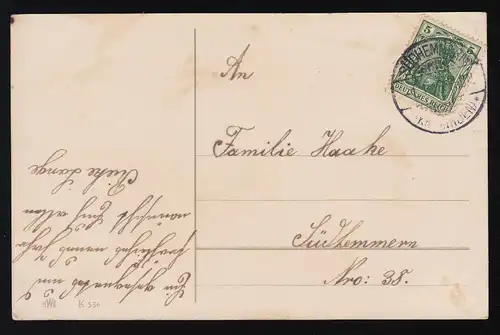 5
DEUTSCHES REICH
An
Familie Haake
Südhemmern
Nro: 38.
Ein gesegnetes und
fröhliches neues Jahr
wünscht Euch allen
Lange
K 550